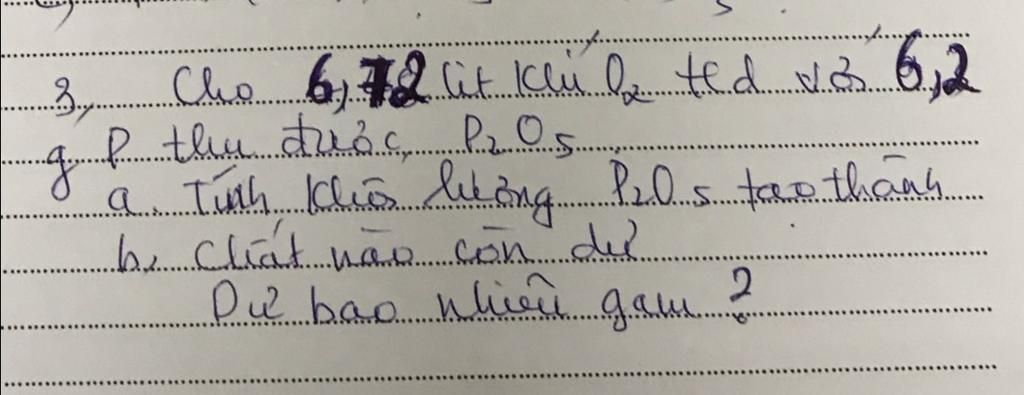 3, Cho 6,72 lit khí O2 ttd với 6,2
g P thu được P2O5
a. Tính khối lượng P2O5 tạo thành
b, Chất nào còn dư
Dư bao nhiêu gam ?